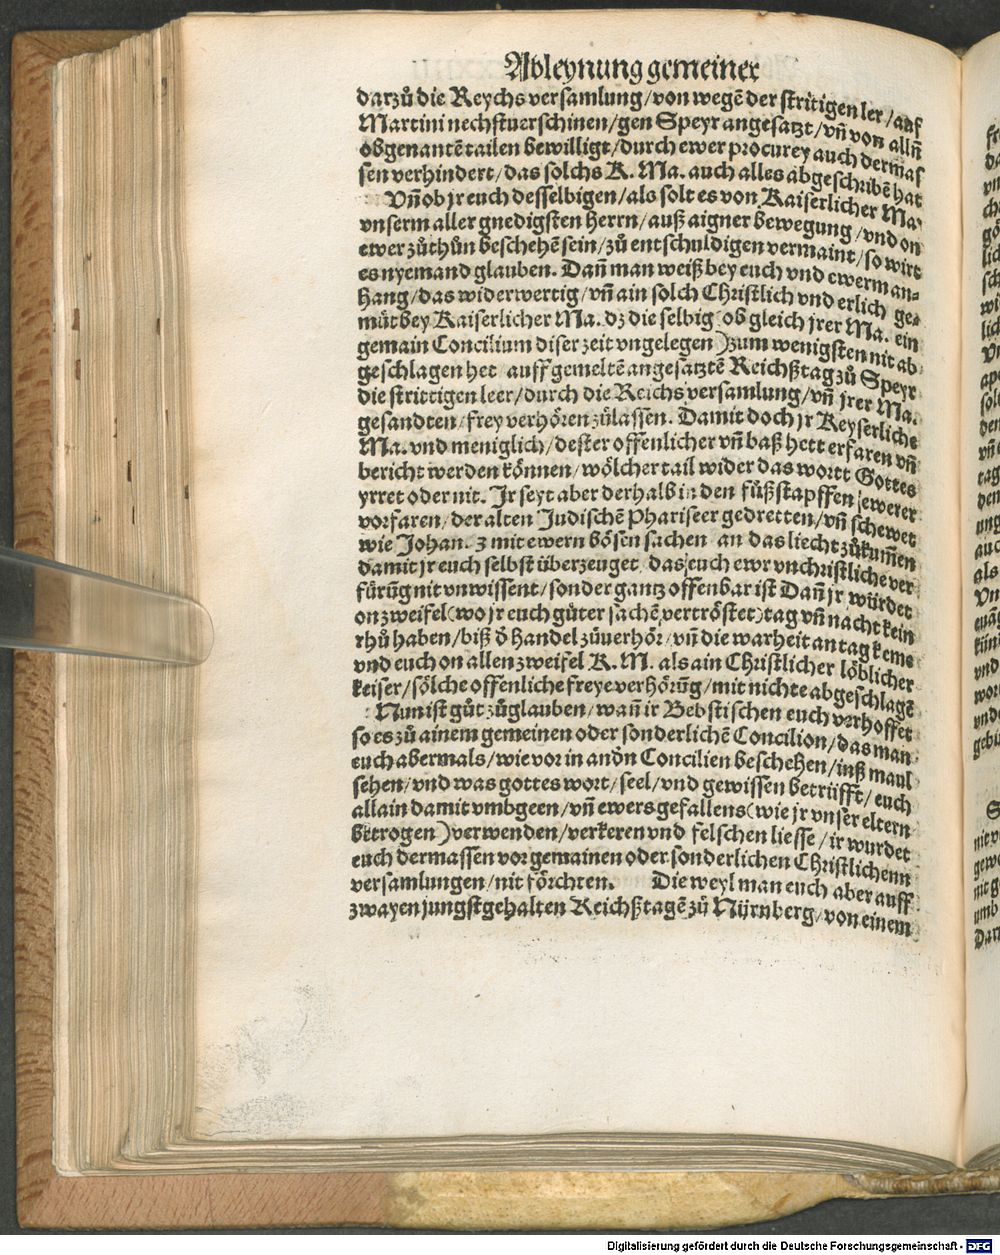 Ableynung gemeiner
darzů die Reychsversamlung/von wegē der stritigen ler/auf
Martini nechstverschinen/gen Speyr angesatzt/vñ von allñ
obgenantē tailen bewilligt/durch ewer procurey auch dermas
sen verhindert/das solchs K. Ma. auch alles abgeschribē hat
Vñ ob jr euch desselbigen/als solt es von Kaiserlicher Ma.
vnserm aller gnedigsten Herrn/auß aigner bewegung/vnd on
ewer zůthůn beschehē sein/zů entschuldigen vermaint/so wirt
es nyemand glauben. Dañ man weiß bey euch vnd ewerm an⸗
hang/das widerwertig/vñ ain solch Christlich vnd erlich ge⸗
műt bey Kaiserlicher Ma. dz die selbig (ob gleich jrer Ma. ein
gemain Concilium diser zeit vngelegen) zum wenigsten nit ab⸗
geschlagen het auff gemeltē angesatztē Reichßtag zů Speyr
die strittigen leer/durch die Reichsversamlung/vñ jrer Ma.
gesandten/frey verhören zůlassen. Damit doch jr Keyserliche
Ma. vnd meniglich/dester offenlicher vñ baß hett erfaren vñ
bericht werden können/wölcher tail wider das wortt Gottes
yrret oder nit. Jr seyt aber derhalb in den fůßstapffen ewerer
vorfaren/der alten Judischē Phariseer gedretten/vñ schewet
wie Johan. 3 mit ewern bösen sachen an das liecht zůkum̃en
damit jr euch selbst überzeuget das euch ewr vnchristliche ver
fürūg nit vnwissent/sonder gantz offenbar ist Dañ jr würdet
on zweifel (wo jr euch gůter sachē vertröstet) tag vñ nacht kein
rhů haben/biß d̕ handel zůverhör/vñ die warheit an tag keme
vnd euch on allen zweifel K. M. als ain Christlicher löblicher
keiser/sölche offenliche freye verhörūg/mit nichte abgeschlagē
Nun ist gůt zůglauben/wañ ir Bebstischen euch verhoffet
so es zů ainem gemeinen oder sonderlichē Concilion/das man
euch abermals/wie vor in and̕n Concilien beschehen/inß maul
sehen/vnd was gottes wort/seel/vnd gewissen betrifft/euch
allain damit vmbgeen/vñ ewers gefallens (wie jr vnser eltern
betrogen) verwenden/verkeren vnd felschen liesse/ir wurdet
euch dermassen vor gemainen oder sonderlichen Christlichenn
versamlungen/nit förchten. Die weyl man euch aber auff
zwayen jungstgehalten Reichßtagē zů Nürnberg/von einem
Digitalisierung gefördert durch die Deutsche Forschungsgemeinschaft - DFG